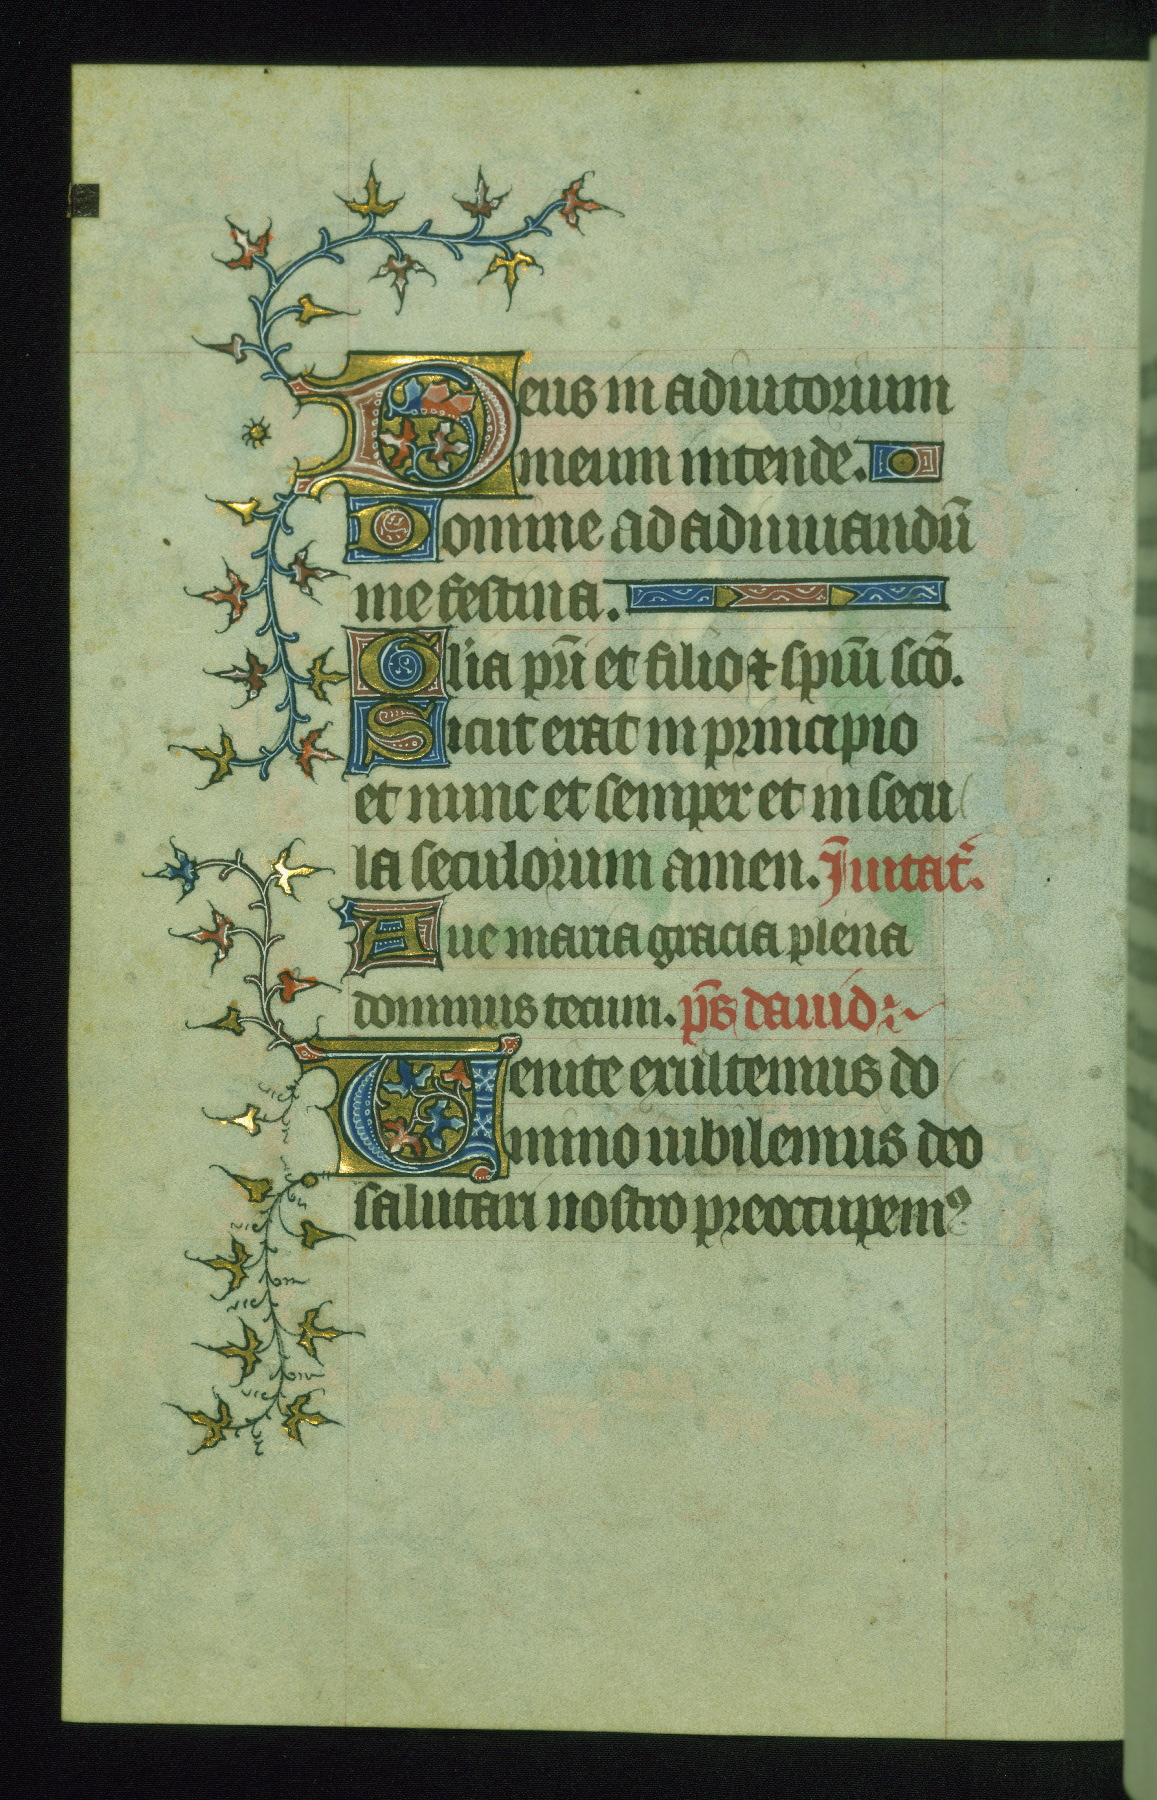 Deus in adiutorium
meum intende.
Domine ad adiuuandū
me festina.
Glia pr̄i et filio ⁊ spiūi scō.
Sicut erat in principio
et nunc et semper et in secu
la seculorum amen. Inuitat̄.
Aue maria gracia plena
dominus tecum. ps̄ dauid:~
Uenite exultemus do
mino iubilemus deo
salutari nostro preoccupemꝰ